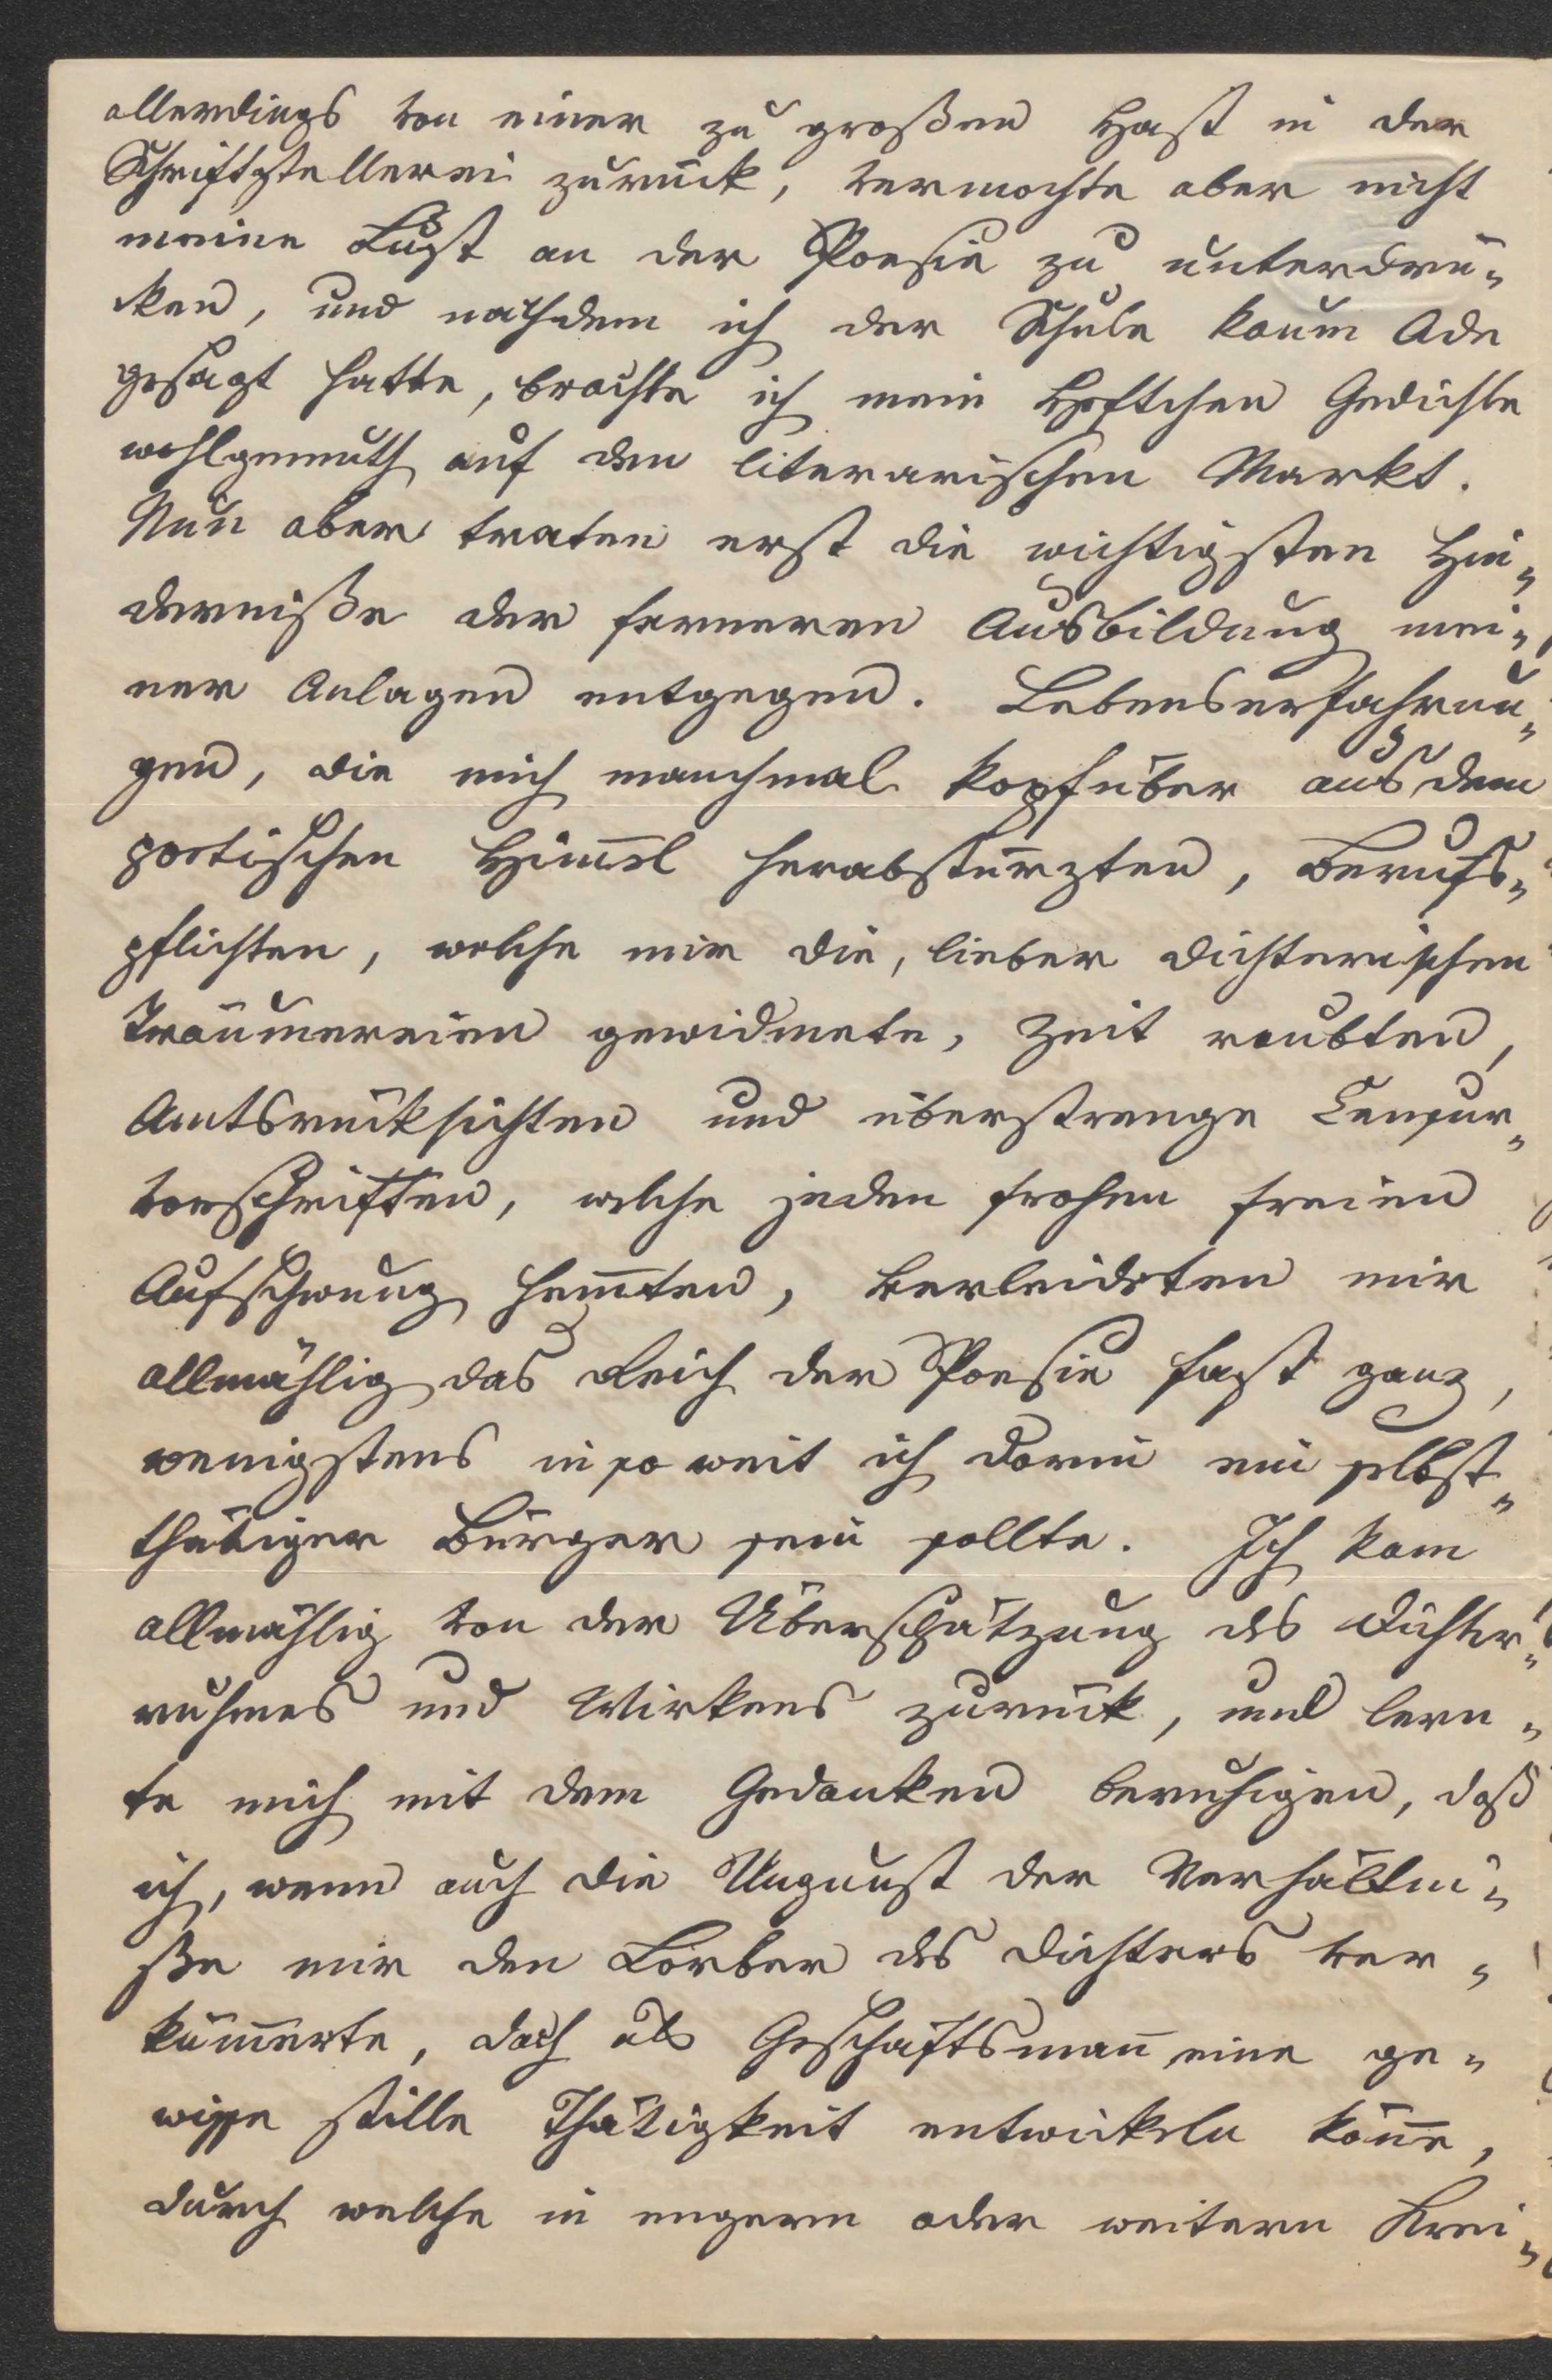 allerdings von einer zu großen Hast in der
Schriftstellerei zurück, vermochte aber nicht
meine Lust an der Poesie zu unterdrü-
cken, und nachdem ich der Schule kaum Ade
gesagt hatte, brachte ich mein Heftchen Gedichte
wohlgemuth auf den literarischen Markt.
Nun aber traten erst die wichtigsten Hin-
derniße der ferneren Ausbildung mei-
ner Anlagen entgegen. Lebenserfahrun-
gen, die mich manchmal kopfüber aus dem
poetischen Him̅el herabstürzten, Berufs-
pflichten, welche mir die, lieber dichterischen
Träumereien gewidmete, Zeit raubten,
Amtsrücksichten und überstrenge Censur-
vorschriften, welche jeden frohen freien
Aufschwung hem̅ten, verleideten mir
allmählig das Reich der Poesie fast ganz,
wenigstens in so weit ich darin ein selbst-
thätiger Bürger sein sollte. Ich kam
allmählig von der Überschätzung des Dichter-
ruhmes und Wirkens zurück, und lern-
te mich mit dem Gedanken beruhigen, daß
ich, wenn auch die Ungunst der Verhältni-
ße mir den Lorber des Dichters ver-
küm̅erte, doch als Geschäftsman̅ eine ge-
wisse stille Thätigkeit entwickeln kön̅e,
durch welche in engern oder weitern Krei-